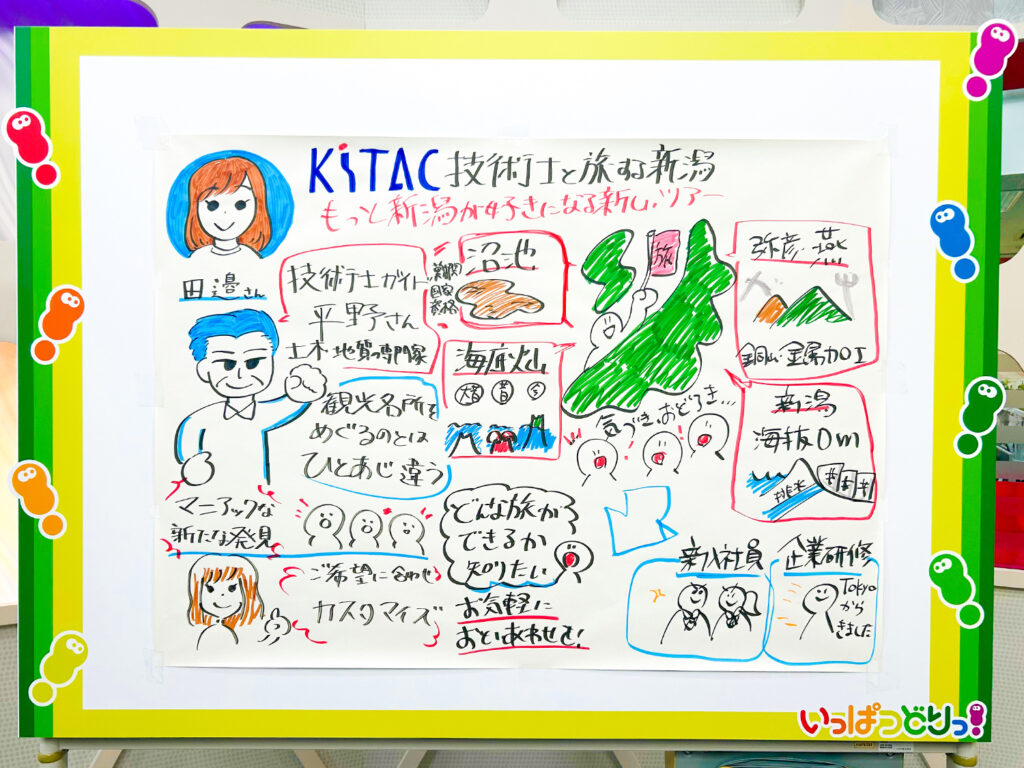 KiTAC 技術士と旅する新潟
もっと新潟が好きになる新しいツアー
田邉さん
技術士ガイド
国家
資格
平野さん
土木・地質の専門家
観光名所を
めぐるのとは
ひとあじ違う
マニアックな
新たな発見
ご希望に合わせ
カスタマイズ
沼池
海底火山
昔
今
旅
気づき、おどろき…
弥彦・燕
銅山・金属加工
新潟
海抜0m
排水
どんな旅が
できるか
知りたい
お気軽に
おといあわせを!
新入社員
企業研修
Tokyo
から
きました
いっぱつどりっ!